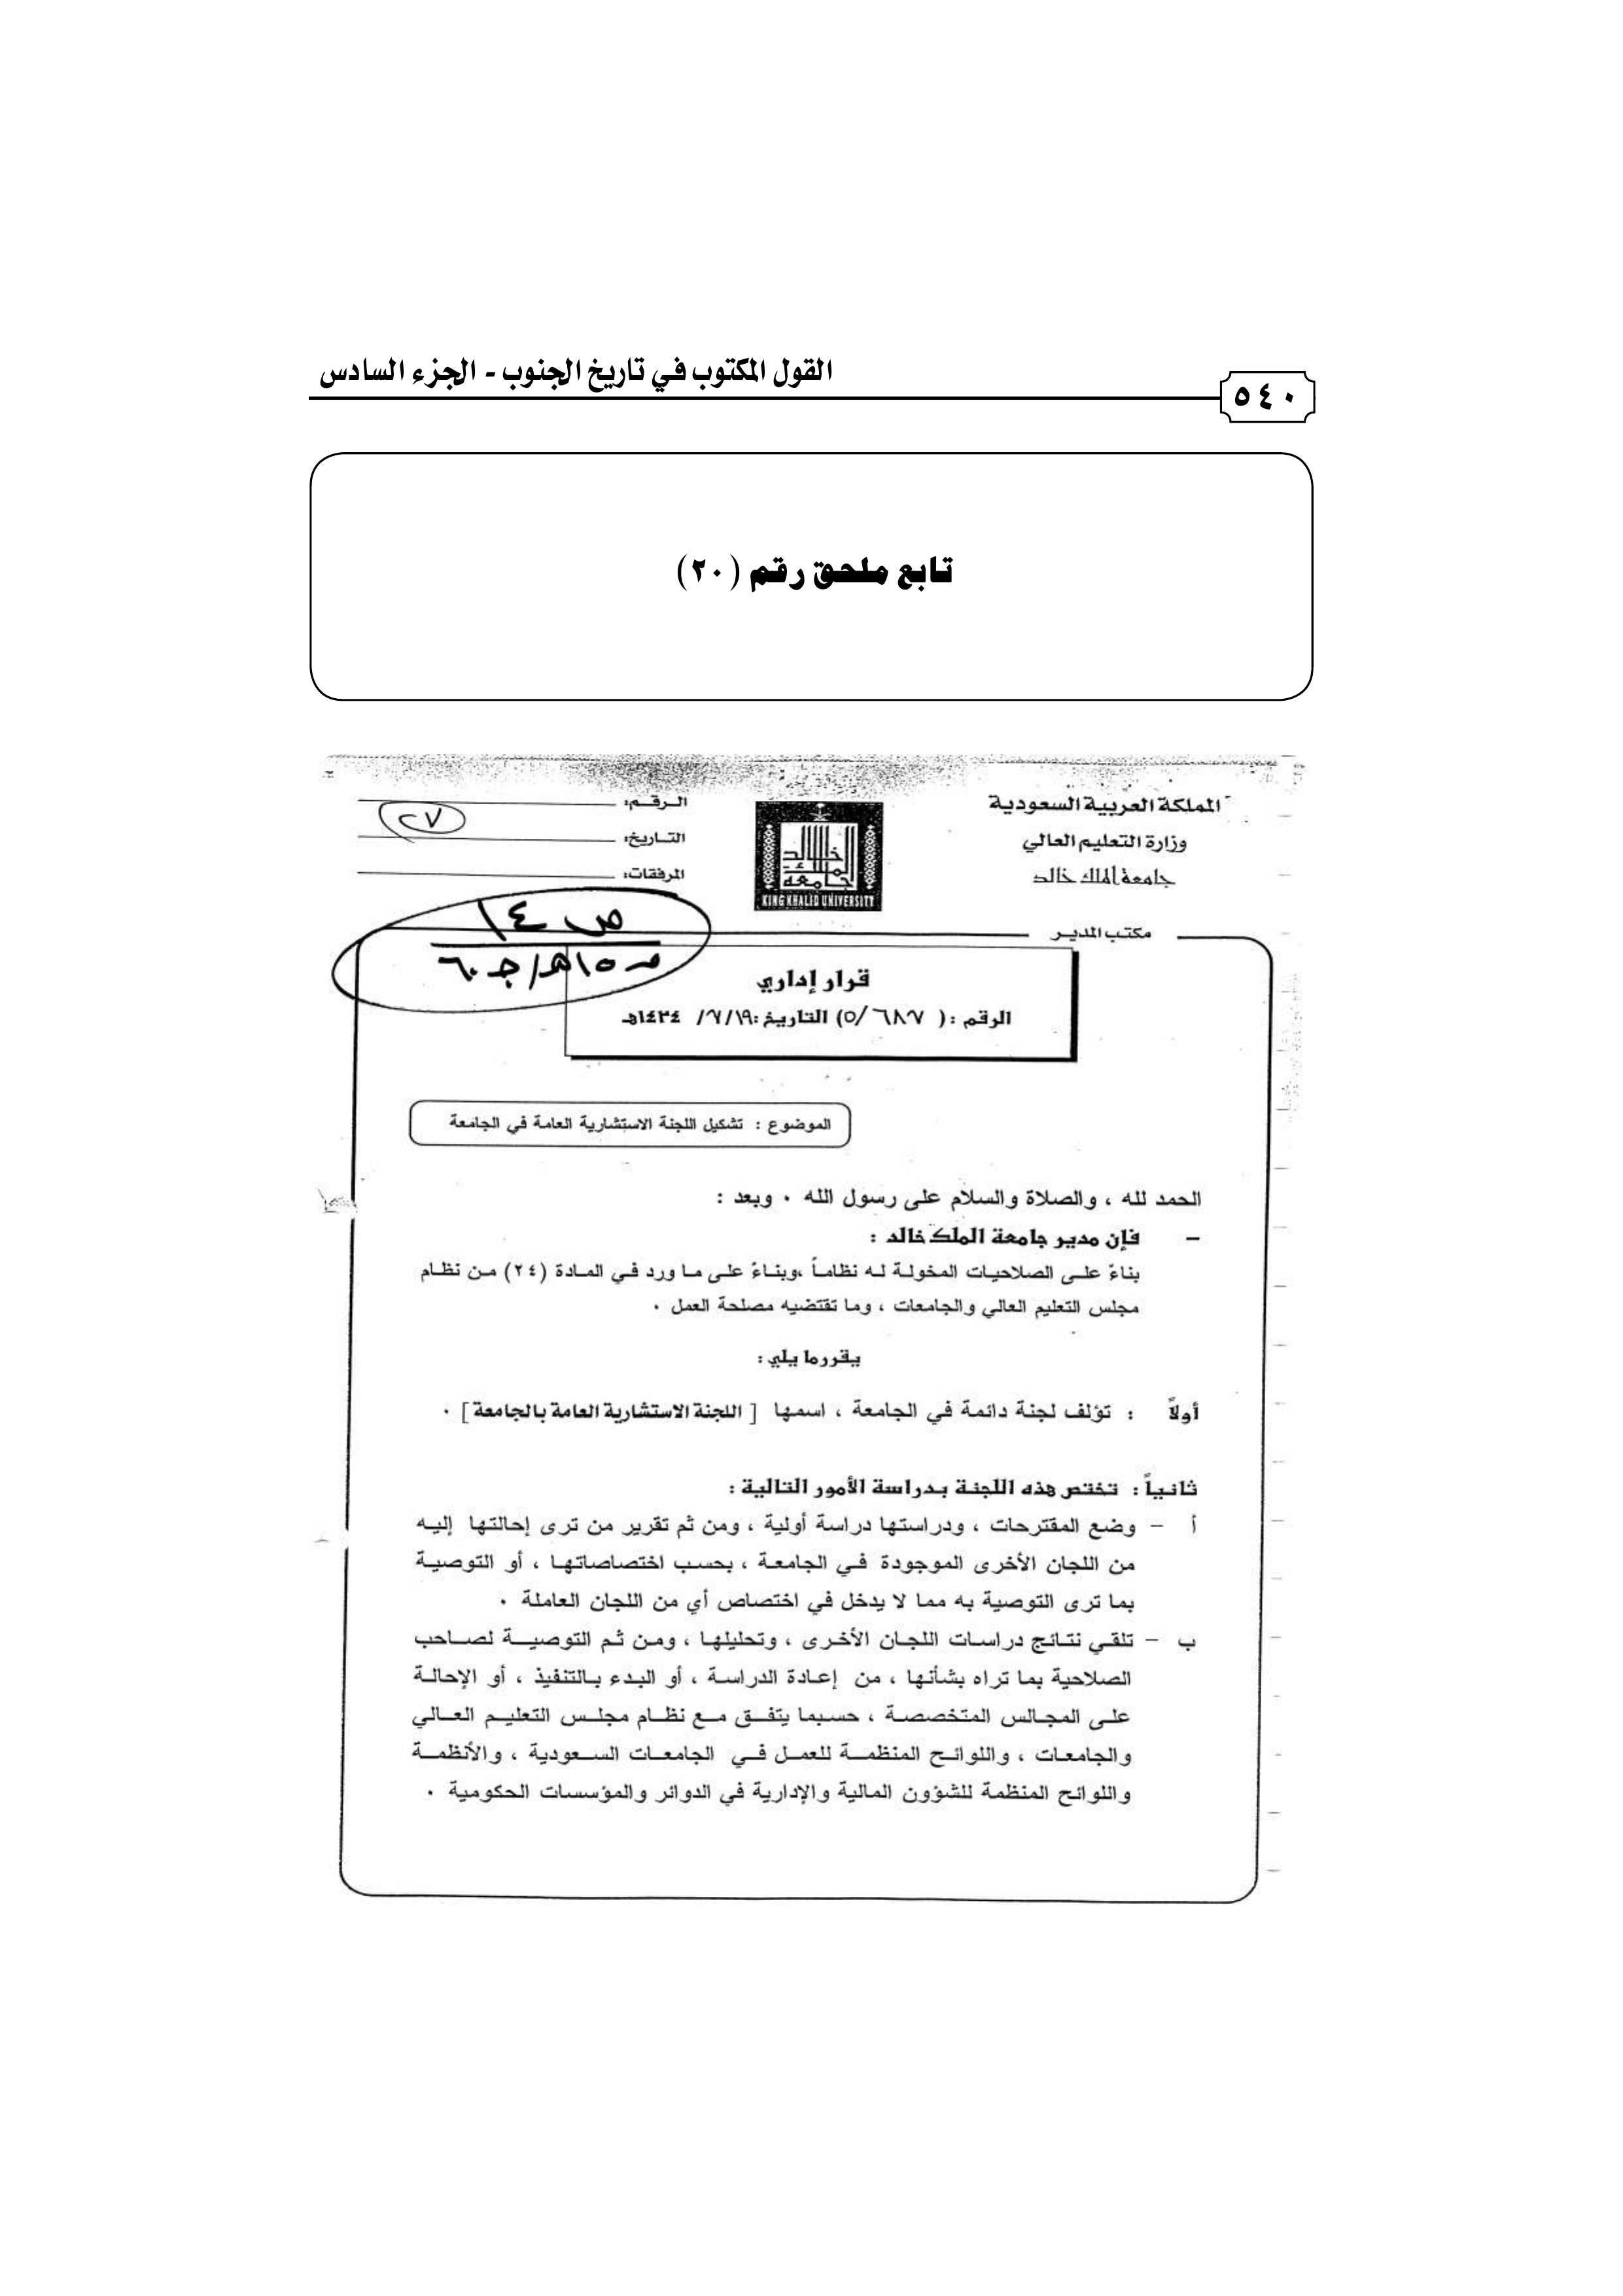 القول المكتوب في تاريخ الجنوب - الجزء السادس
٥٤٠
تابع ملحق رقم (٢٠)
المملكة العربية السعودية
وزارة التعليم العالي
جامعة الملك خالد
مكتب المدير
KING KHALID UNIVERSITY
الرقم:
التاريخ:
المرفقات:
قرار إداري
الرقم : ( ٥/٦٨٧) التاريخ: ١٩/٧/ ١٤٢٤هـ
الموضوع : تشكيل اللجنة الاستشارية العامة في الجامعة
الحمد لله ، والصلاة والسلام على رسول الله ٠ وبعد :
– فإن مدير جامعة الملك خالد :
بناءً على الصلاحيات المخولة له نظاماً ،وبناءً على ما ورد في المادة (٢٤) من نظام
مجلس التعليم العالي والجامعات ، وما تقتضيه مصلحة العمل ٠
يقرر ما يلي :
أولاً : تؤلف لجنة دائمة في الجامعة ، اسمها [ اللجنة الاستشارية العامة بالجامعة ] ٠
ثانياً : تختص هذه اللجنة بدراسة الأمور التالية :
أ – وضع المقترحات ، ودراستها دراسة أولية ، ومن ثم تقرير من ترى إحالتها إليه
من اللجان الأخرى الموجودة في الجامعة ، بحسب اختصاصاتها ، أو التوصية
بما ترى التوصية به مما لا يدخل في اختصاص أي من اللجان العاملة ٠
ب – تلقي نتائج دراسات اللجان الأخرى ، وتحليلها ، ومن ثم التوصية لصاحب
الصلاحية بما تراه بشأنها ، من إعادة الدراسة ، أو البدء بالتنفيذ ، أو الإحالة
على المجالس المتخصصة ، حسبما يتفق مع نظام مجلس التعليم العالي
والجامعات ، واللوائح المنظمة للعمل في الجامعات السعودية ، والأنظمة
واللوائح المنظمة للشؤون المالية والإدارية في الدوائر والمؤسسات الحكومية ٠